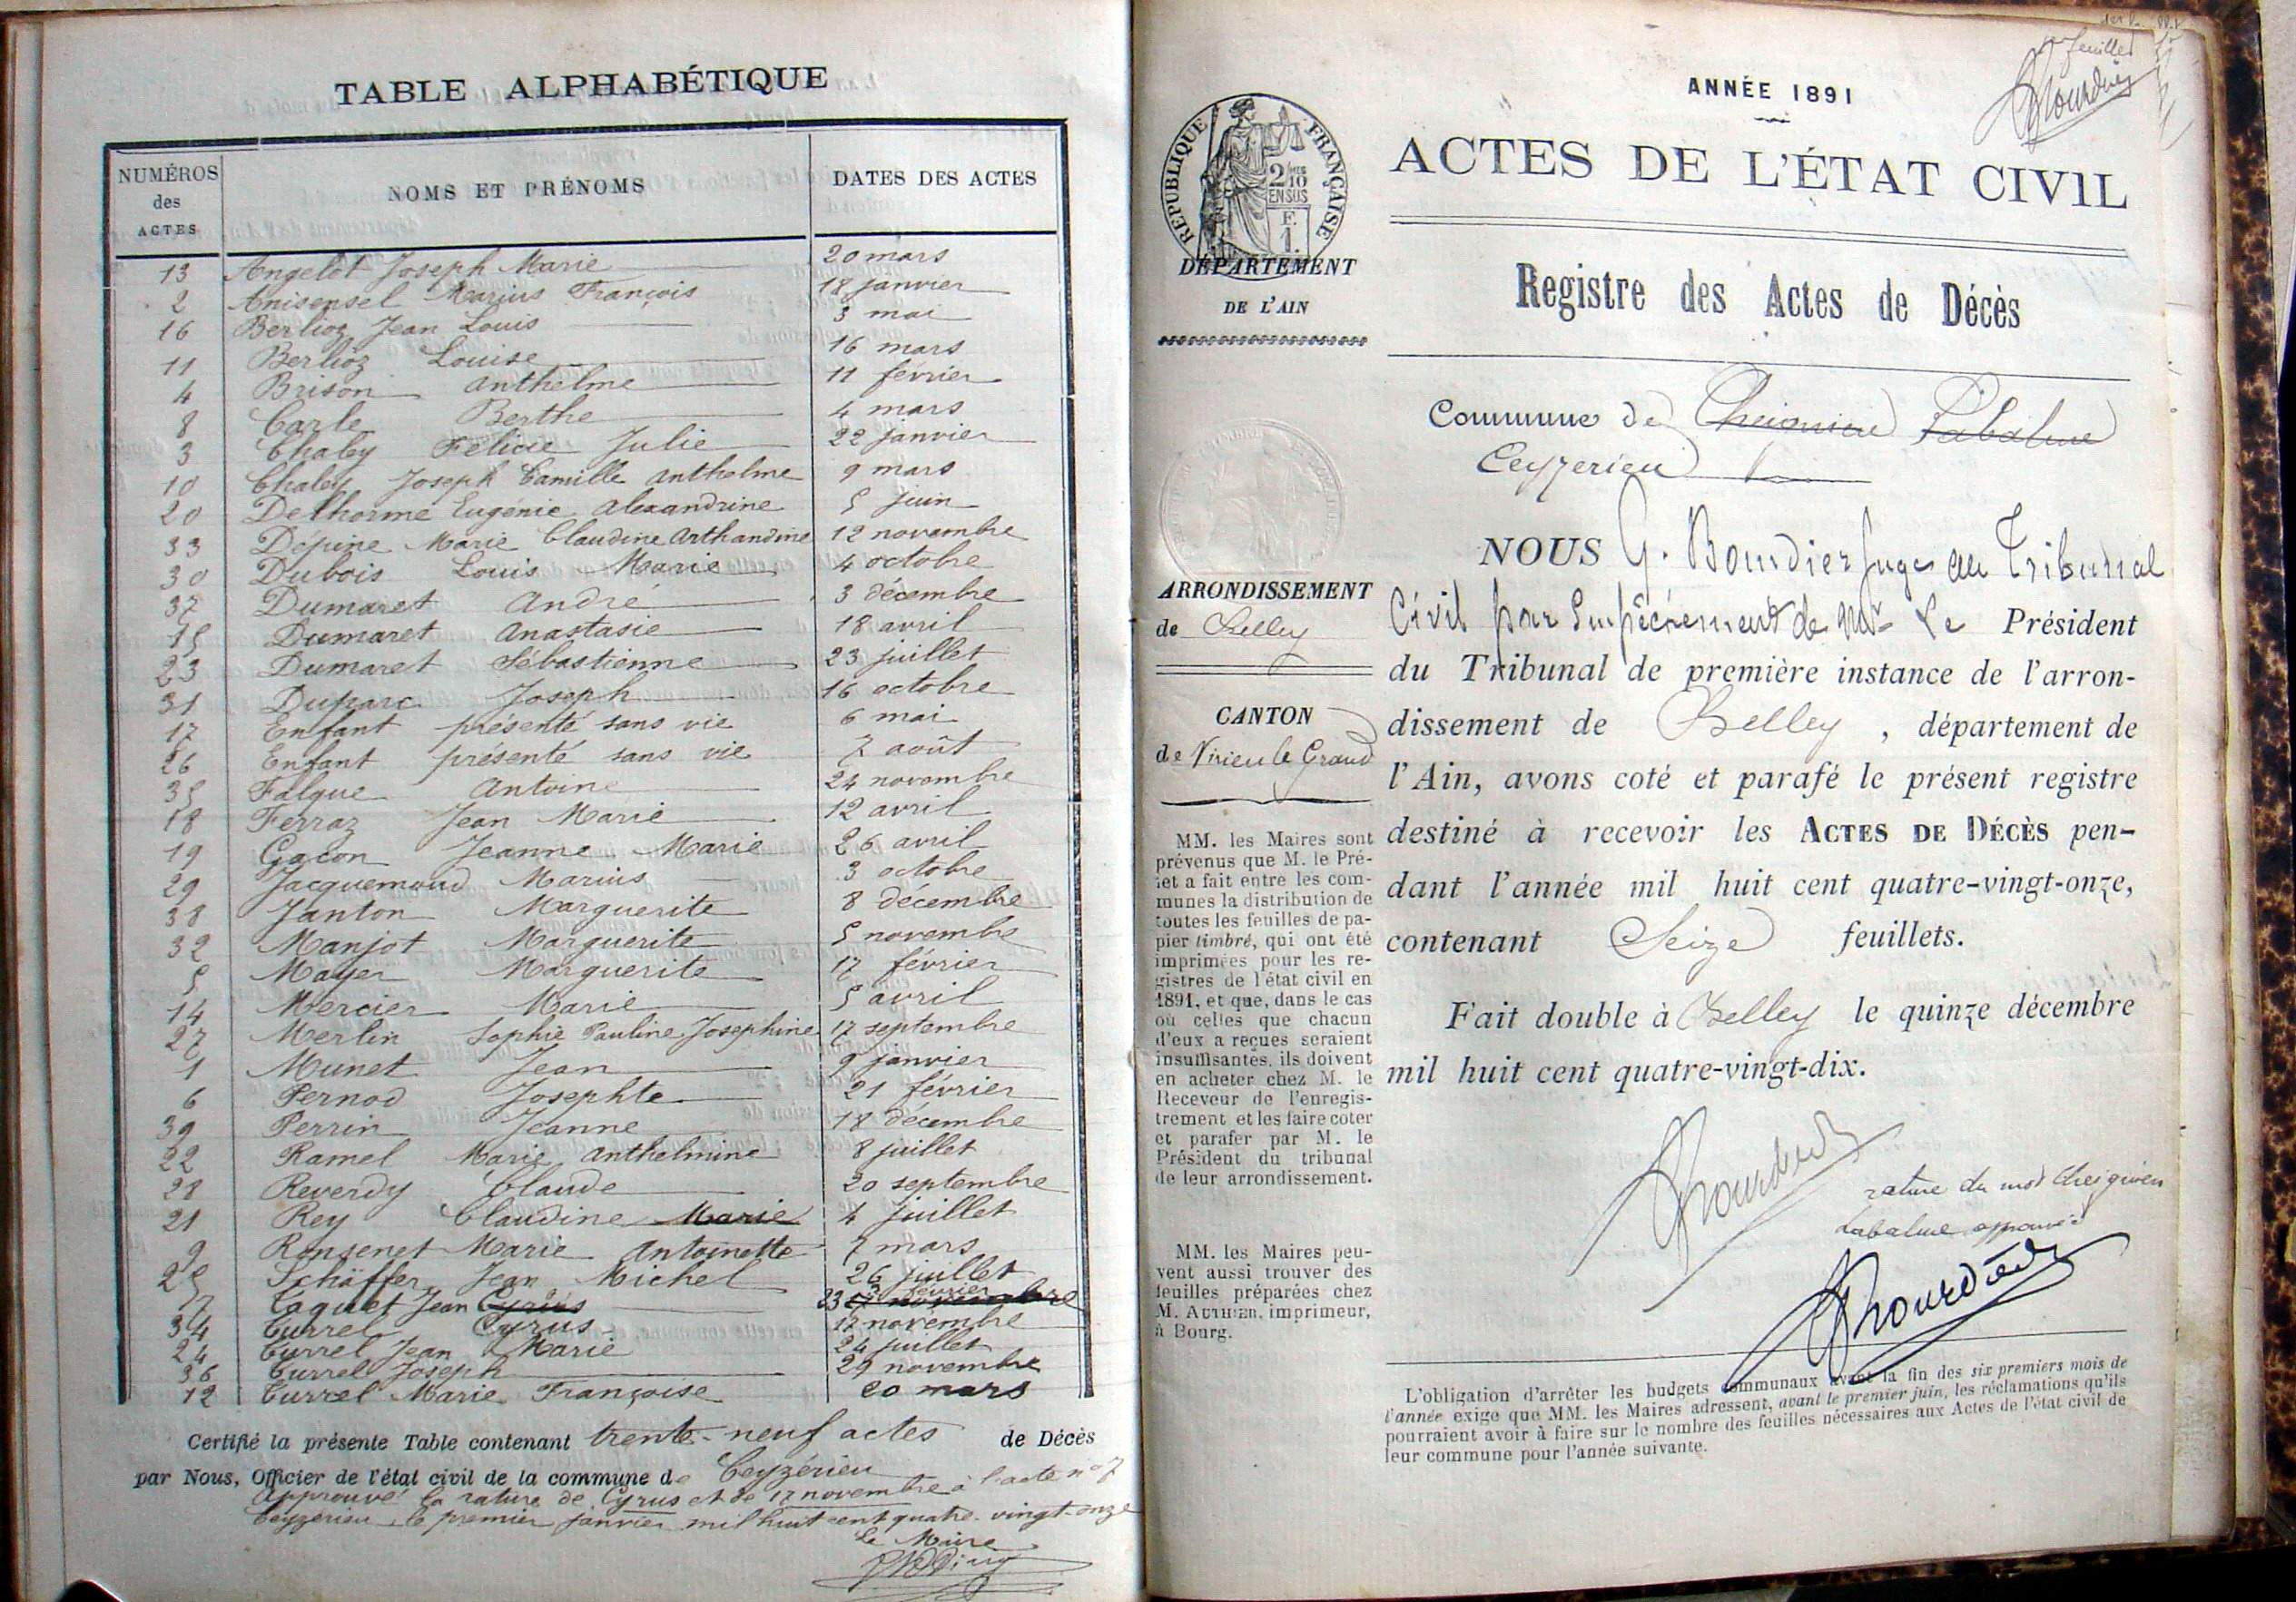 TABLE ALPHABÉTIQUE
NUMÉROS des ACTES
NOMS ET PRÉNOMS
DATES DES ACTES
13 Angelot Joseph Marie 20 mars
2 Anisensel Marius François 18 janvier
16 Berlioz Jean Louis 3 mai
11 Berlioz Louise 16 mars
4 Brison Anthelme 11 février
8 Carle Berthe 4 mars
3 Chaley Félicie Julie 22 janvier
10 Chaley Joseph Camille Anthelme 9 mars
20 Delhorme Eugénie Alexandrine 5 juin
33 Dépine Marie Claudine Arthandine 12 novembre
30 Dubois Louis Marie 4 octobre
37 Dumaret André 3 décembre
15 Dumaret Anastasie 18 avril
23 Dumaret Sébastienne 23 juillet
31 Duparc Joseph 16 octobre
17 Enfant présenté sans vie 6 mai
26 Enfant présenté sans vie 7 août
35 Falque Antoine 24 novembre
18 Ferraz Jean Marie 12 avril
19 Gacon Jeanne Marie 26 avril
29 Jacquemoud Marius 3 octobre
38 Janton Marguerite 8 décembre
32 Manjot Marguerite 5 novembre
5 Mayer Marguerite 17 février
14 Mercier Marie 5 avril
27 Merlin Sophie Pauline Josephine 17 septembre
1 Munet Jean 9 janvier
6 Pernod Josephte 21 février
39 Perrin Jeanne 18 décembre
22 Ramel Marie Anthelmine 8 juillet
28 Reverdy Claude 20 septembre
21 Rey Claudine Marie 4 juillet
9 Ronsenet Marie Antoinette 7 mars
25 Schäffer Jean Michel 26 juillet
7 Taquet Jean Cyrus 23 février 17 novembre
34 Turrel Cyrus 17 novembre
24 Turrel Jean Marie 24 juillet
36 Turrel Joseph 29 novembre
12 Turrel Marie Françoise 20 mars
Certifié la présente Table contenant trente-neuf actes de Décès
par Nous, Officier de l'état civil de la commune de Ceyzérieu
Approuvé la rature de Cyrus et de 17 novembre à l'acte n° 7
Ceyzérieu, le premier janvier mil huit cent quatre-vingt-onze
Le Maire
feuillet
Bourdier
ANNÉE 1891
ACTES DE L'ÉTAT CIVIL
RÉPUBLIQUE FRANÇAISE
2/10 EN SUS
F.
1.
DÉPARTEMENT
DE L'AIN
Registre des Actes de Décès
Commune de Cheignieu Labalme
Ceyzerieu
NOUS G. Bourdier Juge au Tribunal
Civil par Empêchement de Mr Le Président
du Tribunal de première instance de l'arron-
dissement de Belley, département de
l'Ain, avons coté et parafé le présent registre
destiné à recevoir les ACTES DE DÉCÈS pen-
dant l'année mil huit cent quatre-vingt-onze,
contenant Seize feuillets.
Fait double à Belley le quinze décembre
mil huit cent quatre-vingt-dix.
Bourdier
rature du mot Cheignieu
Labalme approuvée
Bourdier
ARRONDISSEMENT
de Belley
CANTON
de Virieu le Grand
MM. les Maires sont
prévenus que M. le Pré-
fet a fait entre les com-
munes la distribution de
toutes les feuilles de pa-
pier timbré, qui ont été
imprimées pour les re-
gistres de l'état civil en
1891, et que, dans le cas
où celles que chacun
d'eux a reçues seraient
insuffisantes, ils doivent
en acheter chez M. le
Receveur de l'enregis-
trement et les faire coter
et parafer par M. le
Président du tribunal
de leur arrondissement.
MM. les Maires peu-
vent aussi trouver des
feuilles préparées chez
M. AUTHIER, imprimeur,
à Bourg.
L'obligation d'arrêter les budgets communaux avant la fin des six premiers mois de
l'année exige que MM. les Maires adressent, avant le premier juin, les réclamations qu'ils
pourraient avoir à faire sur le nombre des feuilles nécessaires aux Actes de l'état civil de
leur commune pour l'année suivante.